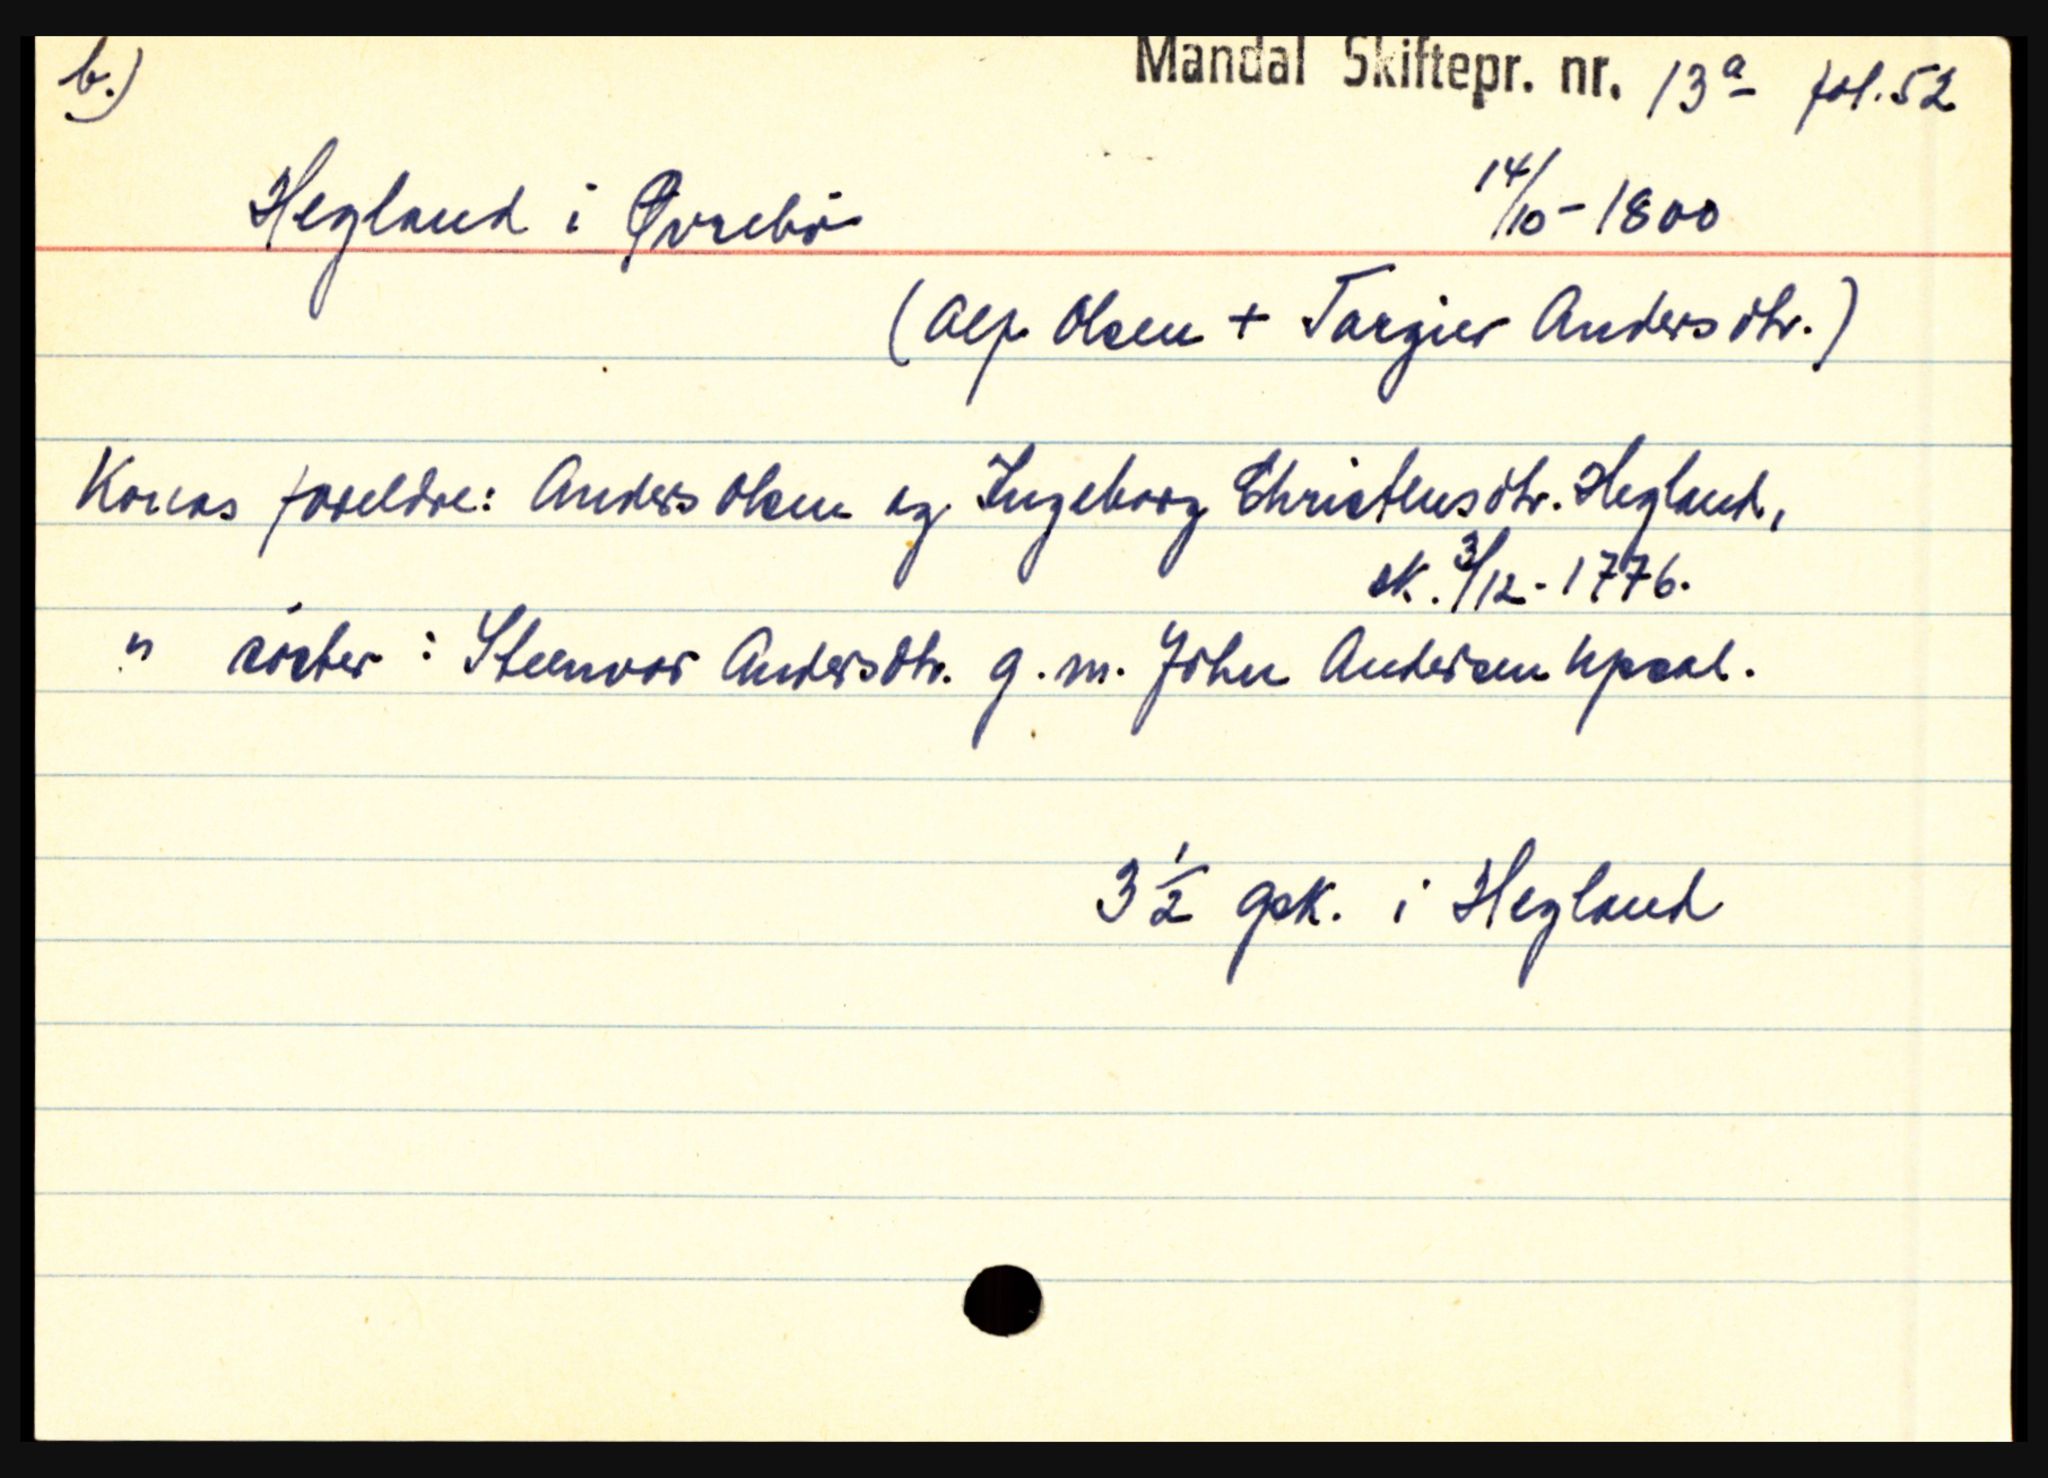 b.)
Mandal Skiftepr. nr. 13a fol. 52
Hegland i Øvrebö 14/10-1800
(Alf Olsen + Targier Andersdtr.)
Konas foreldre: Anders Olsen og Ingeborg Christensdtr. Hegland,
sk. 3/12-1776.
" söster: Steenvor Andersdtr. g.m. John Andersen Upsal.
3 1/2 gsk. i Hegland